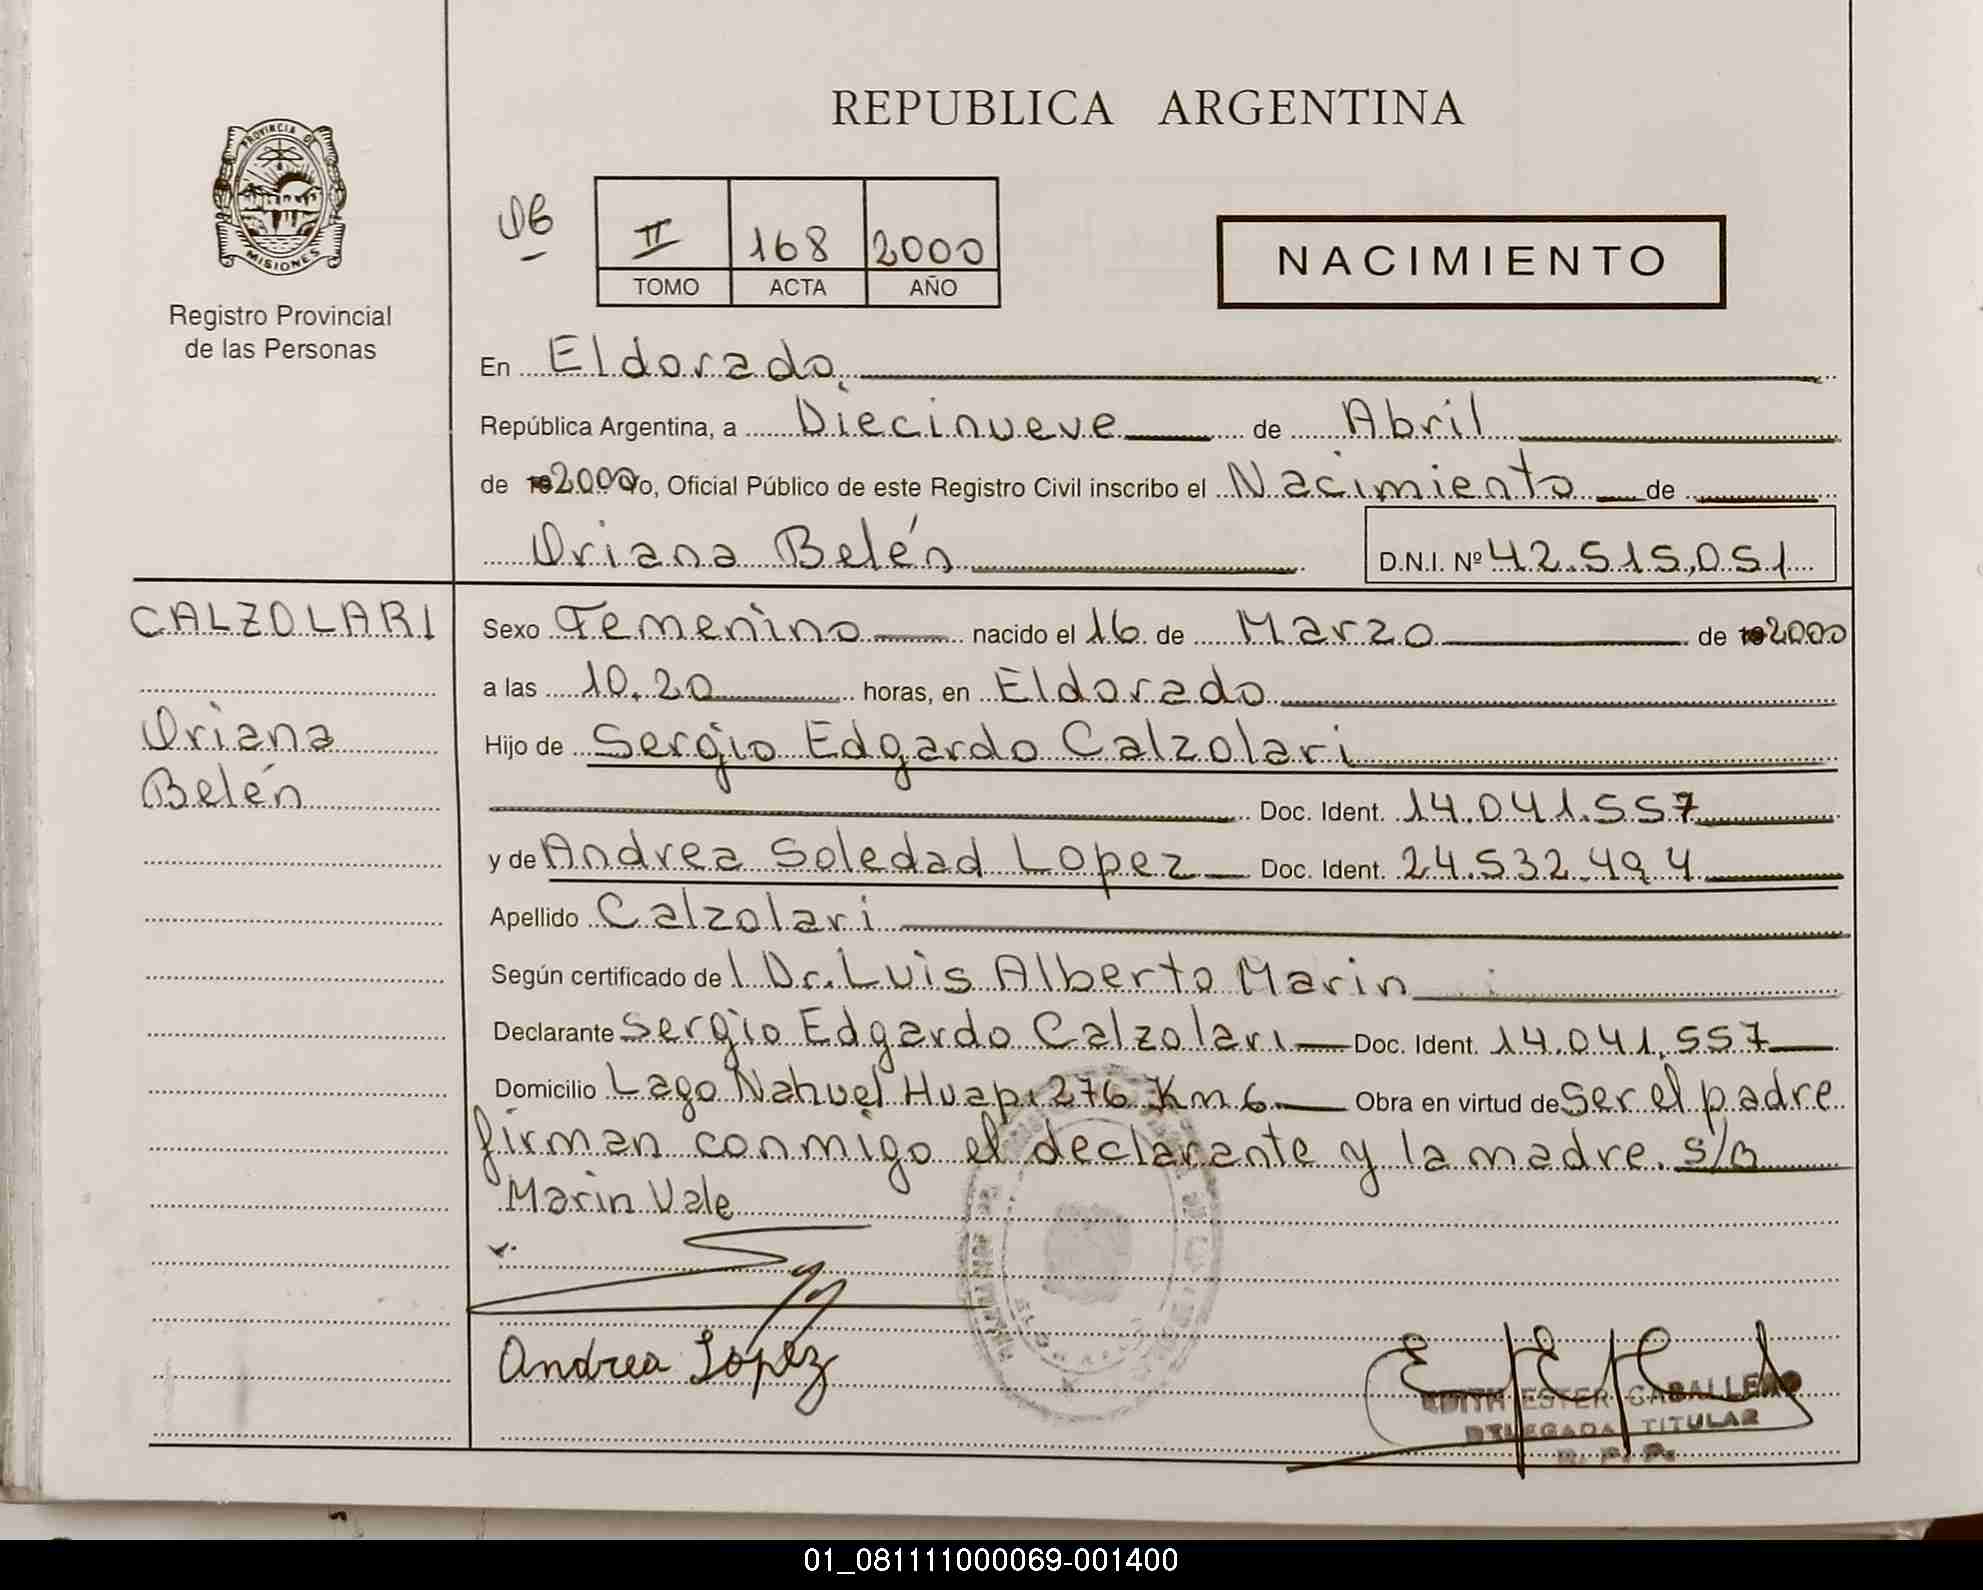 REPUBLICA ARGENTINA
PROVINCIA DE
MISIONES
Registro Provincial
de las Personas
II 168 2000
TOMO ACTA AÑO
NACIMIENTO
En Eldorado
República Argentina, a Diecinueve de Abril
de 2000 yo, Oficial Público de este Registro Civil inscribo el Nacimiento de
Oriana Belén D.N.I. Nº 42.515.051
CALZOLARI
Oriana
Belén
Sexo Femenino nacido el 16 de Marzo de 2000
a las 10.20 horas, en Eldorado
Hijo de Sergio Edgardo Calzolari
Doc. Ident. 14.041.557
y de Andrea Soledad Lopez Doc. Ident. 24.532.494
Apellido Calzolari
Según certificado de l Dr. Luis Alberto Marin
Declarante Sergio Edgardo Calzolari Doc. Ident. 14.041.557
Domicilio Lago Nahuel Huapi 276 Km 6 Obra en virtud de ser el padre
firman conmigo el declarante y la madre. s/b
Marin Vale
Andrea López
EDITH ESTER CABALLERO
DELEGADA TITULAR
R. P. P.
01_081111000069-001400